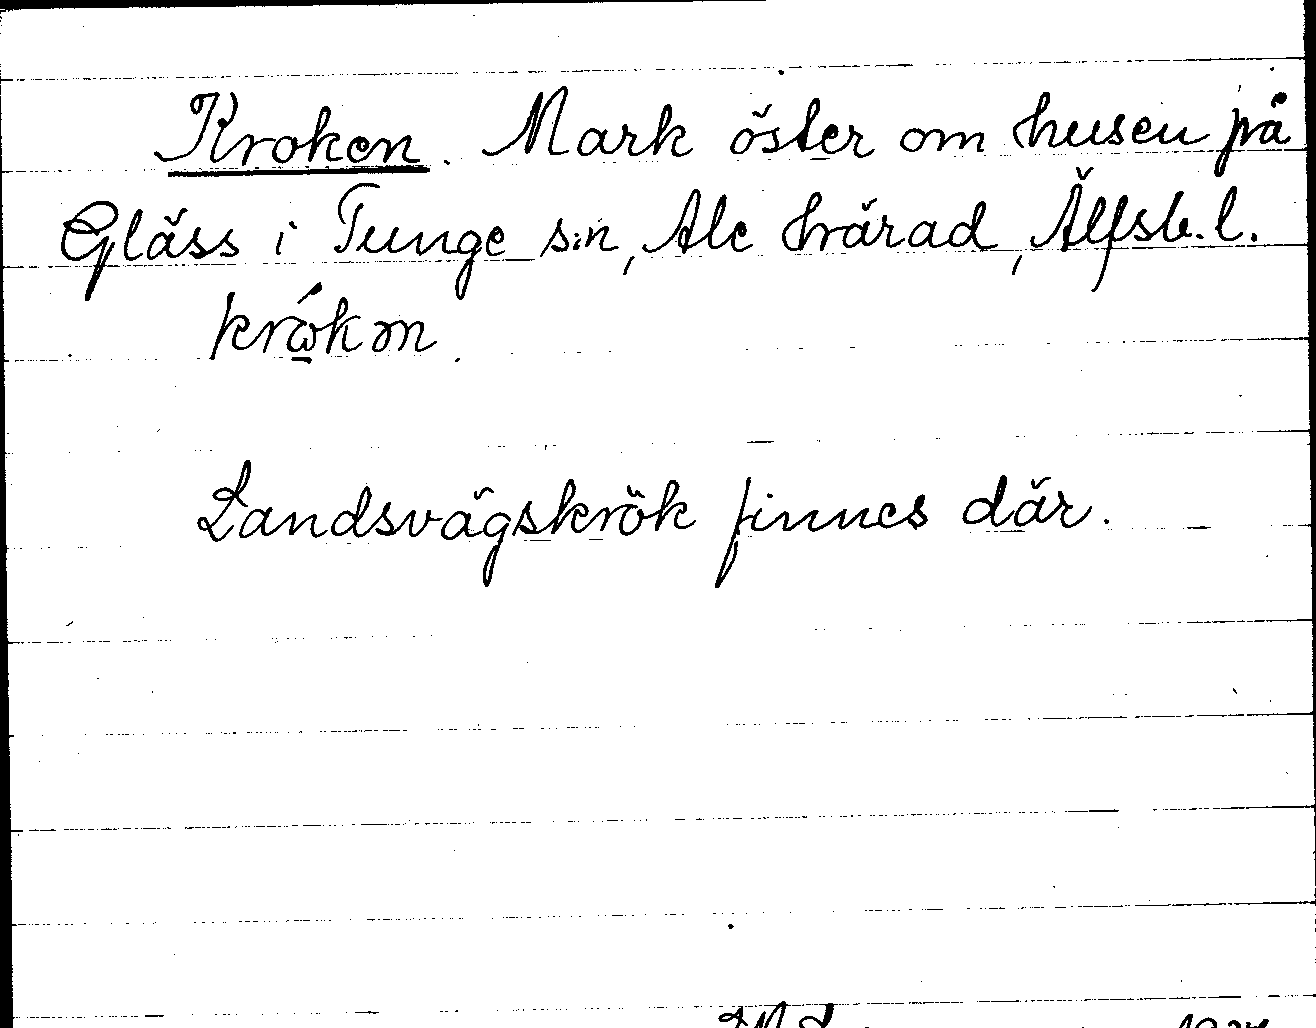 Kroken. Mark öster om husen på
Gläss i Tunge s:n, Ale härad, Älfsb. l.
krókm.
Landsvägskrök finnes där.